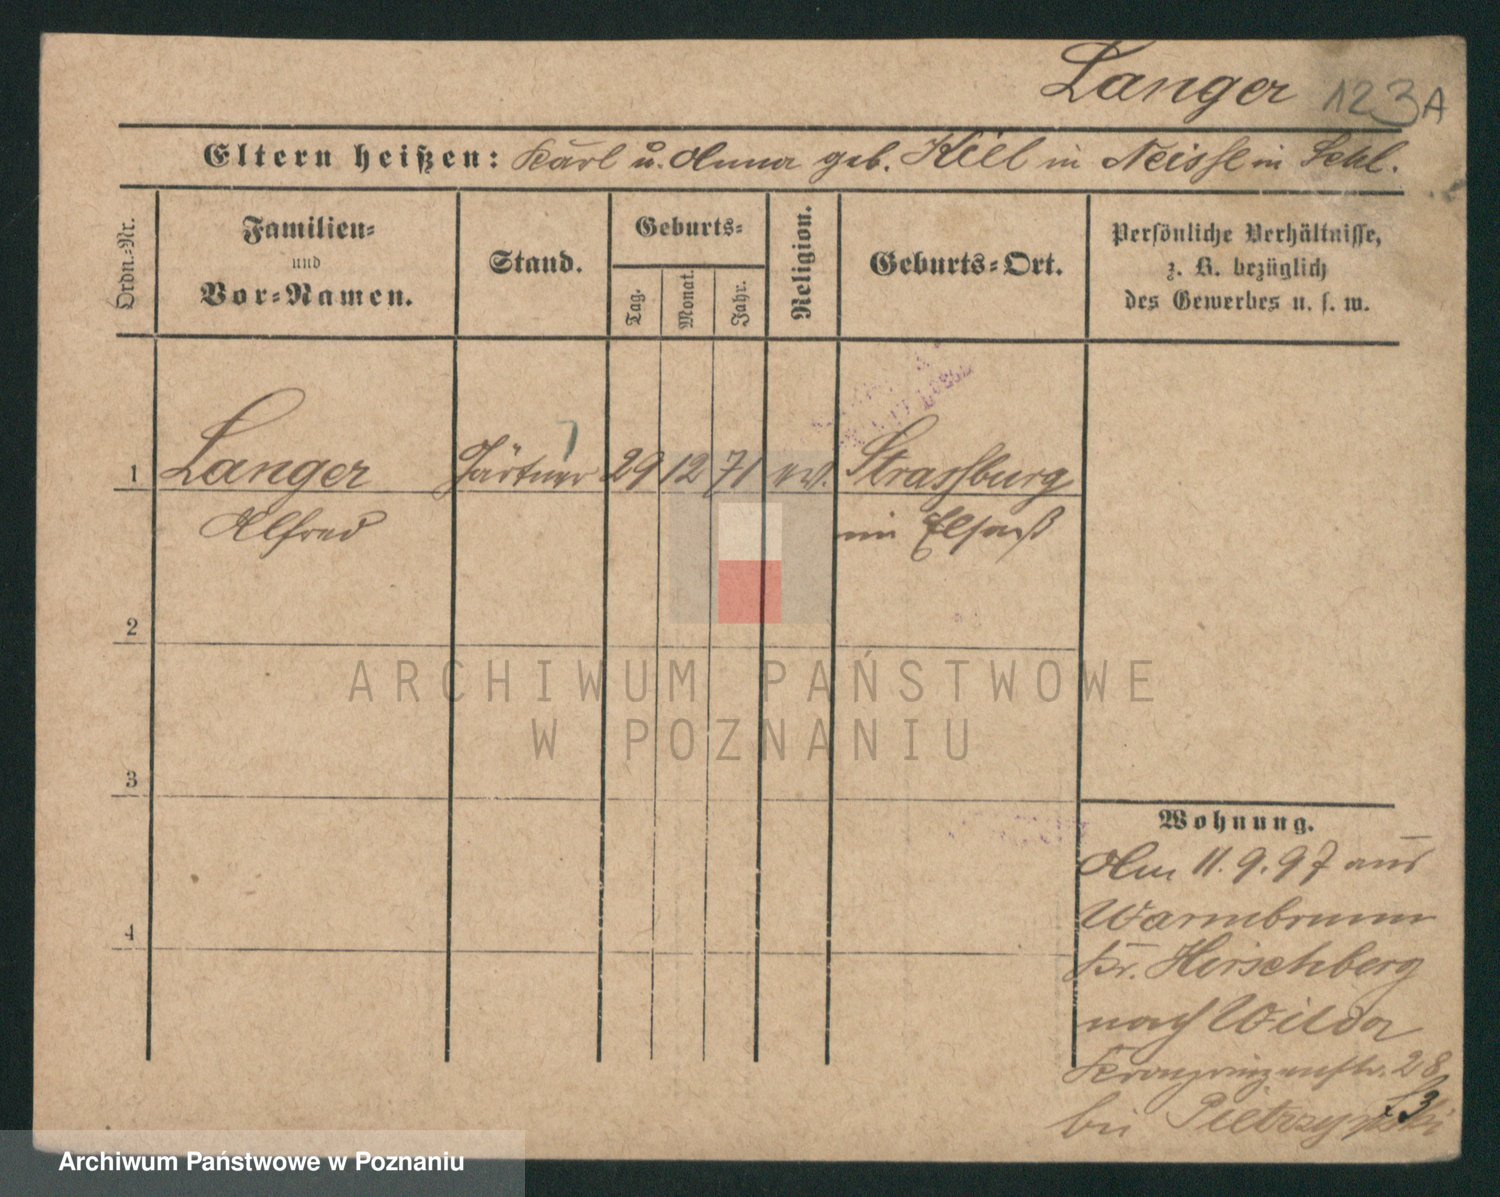 Langer 123A
Eltern heißen: Karl u. Anna geb. Kiel in Neisse in Schl.
Ordn.-Nr.
Familien-
und
Vor-Namen.
Stand.
Geburts-
Tag.
Monat.
Jahr.
Religion.
Geburts-Ort.
Persönliche Verhältnisse,
z. B. bezüglich
des Gewerbes u. s. w.
1 Langer Gärtner 29 12 71 ev. Strassburg
Alfred im Elsaß
2
3
4
Wohnung.
Am 11.9.97 aus
Warmbrunn
Kr. Hirschberg
nach Wilda
Kronprinzenstr. 28
bei
ARCHIWUM PAŃSTWOWE
W POZNANIU
Archiwum Państwowe w Poznaniu